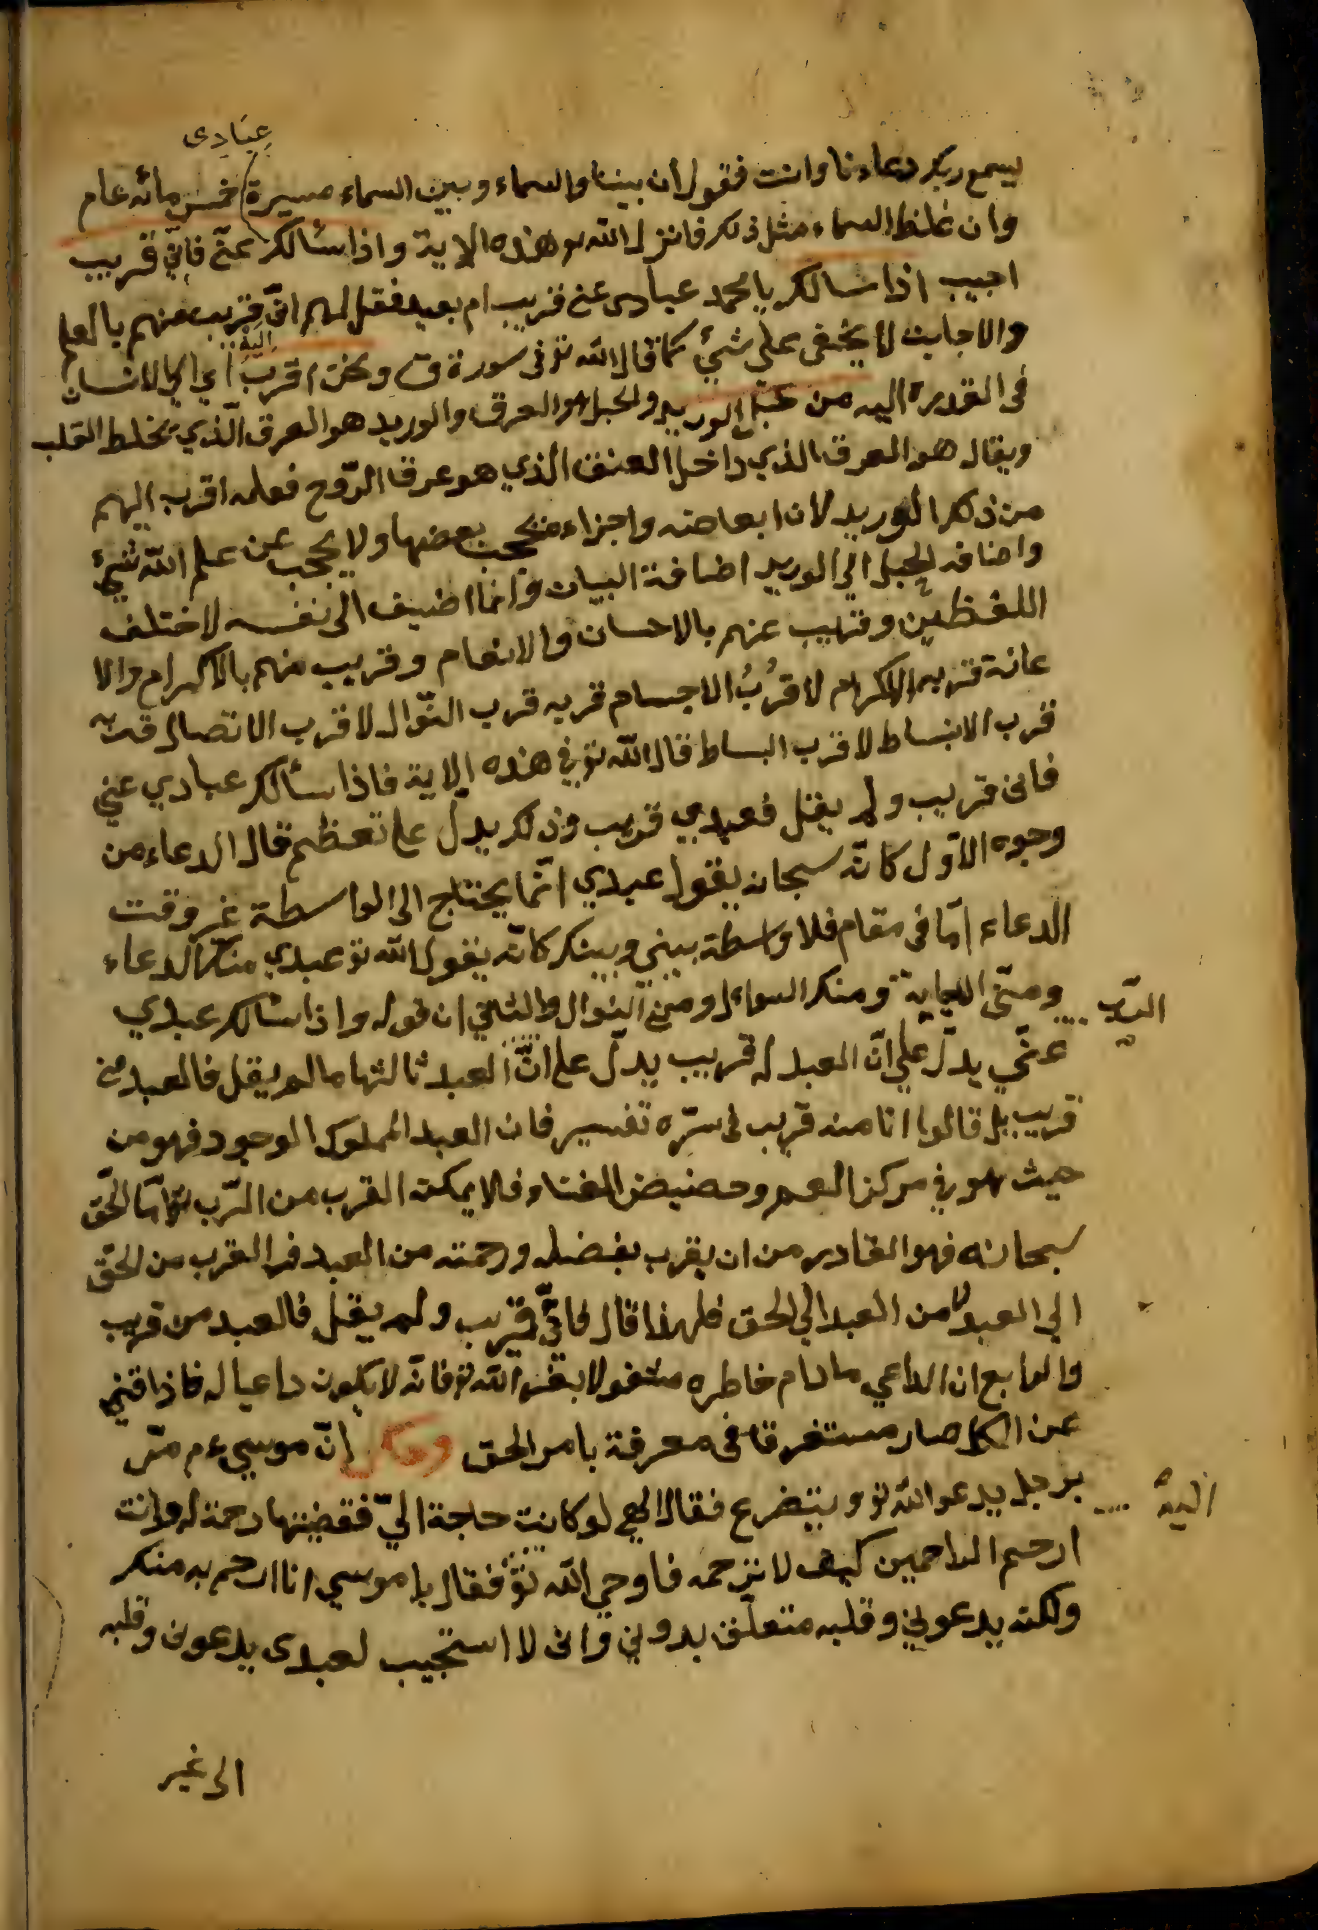 عبادى
يسمع ربك دعاءنا وانت فقول ان بيننا والسماء وبين السماء مسيرة خمس مائه عام
وان غلظ السماء مثل ذلك فانزل الله تع هذه الاية واذا سألك عنّي فانّي قريب
اجيب اذا سالك يا محمد عبادى عنى قريب ام بعيد فقل لهم انّى قريب منهم بالعلم
والاجابت لا يخفى على شئ كما قال الله تع فى سورة ق ونحن اقرب اليه اي الي الانسان
فى القدرة اليه من حبل الوريد والحبل هو العرق والوريد هو العرق الّذي يخلط القلب
ويقال هو العرق الذي داخل العنق الذي هو عرق الرّوح فعلمه اقرب اليهم
من ذكر الوريد لان ابعاضه واجزاءه يحجب بعضها ولا يحجب عن علم الله شئ
واضافه الحبل الي الوريد اضافة البيان وانما اضيف الى نفسه لاختلف
اللفظين وقريب عنهم بالاحسان والانعام وقريب منهم بالاكرام والا
عانة قربه الاكرام لا قُربُ الاجسام قربه قرب النّوال لا قرب الاتصال قربه
قرب الانبساط لا قرب البساط قال الله تع في هذه الاية فاذا سألك عبادي عني
فانى قريب ولم يقل فعبدي قريب وذلك يدل على تعظم قال الدعاء من
وجوه الاوّل كانّه سبحان يقول عبدي انّما يحتاج الى الواسطة غير وقت
الدعاء امّا فى مقام فلا واسطة بيني وبينك كانّه يقول الله تع عبدي منك الدعاء
ومنّى الاجابة ومنك السواءل ومنى النوال والثاني ان قوله واذا سألك عبدي
عنّي يدلّ علي انّ العبد له قريب يدلّ على انّ العبد ثالثها ما لم يقل فالعبد منى
الرّب
قريب بل قالوا انا منه قريب فى سرّه تفسير فان العبد المملوك الموجود فهو من
حيث هو في مركز العدم وحضيض الفناء فلا يمكن القرب من الرّب تع امّا الحّق
سبحانه فهو القادر من ان يقرب بفضله ورحمته من العبد فى القرب من الحّق
الي العبد لا من العبد الي الحق فلهذا قال فانّي قريب ولم يقل فالعبد من قريب
والرابع ان الداعي مادام خاطره مشغولا بغير الله تع فانّه لا يكون داعيا له فاذا قنى
عن الكل صار مستغرقا فى معرفة بامر الحق وحكى انّ موسيء م مرّ
برجل يدعو الله تع ويتضرع فقال الهي لو كانت حاجة اليّ فقضيتها رحمة له وانت
اليه
ارحم الراحمين كيف لا تزحمه فاوحي الله تع فقال يا موسي انا ارحم به منك
ولكنه يدعوني وقلبه متعلّق بدوني وانى لا استجيب لعبدى يدعونى وقلبه
الى غير